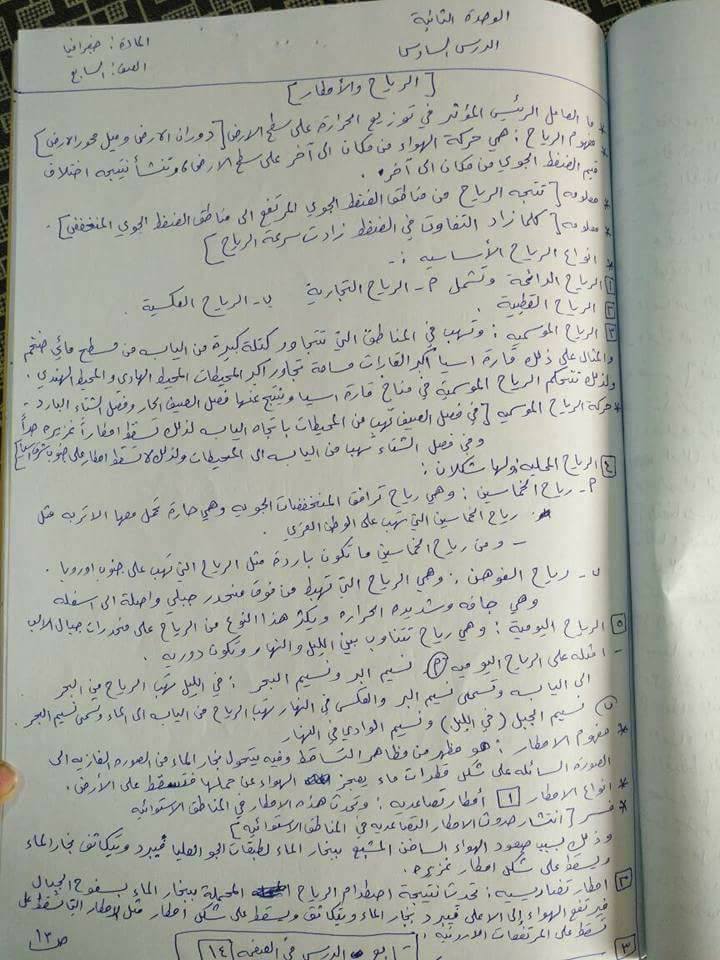 الوحدة الثانية
المادة : جغرافيا
الدرس السادس
الصف : السابع
[ الرياح والأمطار ]
* ما العامل الرئيس المؤثر في توزيع الحرارة على سطح الارض [ دوران الارض وميل محور الارض ]
* مفهوم الرياح : هي حركة الهواء من مكان الى آخر على سطح الارض ، وتنشأ نتيجه اختلاف
قيم الضغط الجوي من مكان الى آخر .
* معلومه [ تتجه الرياح من مناطق الضغط الجوي المرتفع الى مناطق الضغط الجوي المنخفض ] .
* معلومه [ كلما زاد التفاوت في الضغط زادت سرعة الرياح ]
* انواع الرياح الأساسيه :-
١ الرياح الدائمة وتشمل م - الرياح التجارية ب - الرياح العكسية
٢ الرياح القطبية .
٣ الرياح الموسميه : وتهب في المناطق التي تتجاور كتلة كبيرة من اليابسه من مسطح مائي ضخم
والمثال على ذلك قارة اسيا أكبر القارات مساحة تجاور أكبر المحيطات المحيط الهادي والمحيط الهندي .
ولذلك تتحكم الرياح الموسمية في مناخ قارة اسيا وينتج عنها فصل الصيف الحار وفصل الشتاء البارد -
* حركة الرياح الموسميه [ في فصل الصيف تهب من المحيطات باتجاه اليابسه لذلك تسقط امطاراً غزيره جداً
وفي فصل الشتاء تهب من اليابسه الى المحيطات ولذلك لا تسقط امطار على جنوب شرق اسيا ]
٤ الرياح المحليه ولها شكلان :
م - رياح الخماسين : وهي رياح ترافق المنخفضات الجويه وهي حارة تحمل معها الاتربه مثل
رياح الخماسين التي تهب على الوطن العربي .
- ومن رياح الخماسين ما تكون باردة مثل الرياح التي تهب على جنوب اوروبا .
ب - رياح الفوهن : وهي الرياح التي تهبط من فوق منحدر جبلي واصلة الى اسفله
وهي جافه وشديده الحراره ويكثر هذا النوع من الرياح على منحدرات جبال الالب
٥ الرياح اليومية : وهي رياح تتناوب بين الليل والنهار وتكون دوريه .
- امثله على الرياح اليوميه م نسيم البر ونسيم البحر : في الليل تهب الرياح من البحر
الى اليابسه وتسمى نسيم البر والعكس في النهار تهب الرياح من اليابسه الى الماء وتسمى نسيم البحر .
ب نسيم الجبل ( في الليل ) ونسيم الوادي في النهار
* مفهوم الامطار : هو مظهر من مظاهر التساقط وفيه يتحول بخار الماء من الصوره الغازيه الى
الصورة السائله على شكل قطرات ماء يعجز الهواء عن حملها فتسقط على الأرض .
* انواع الامطار ١ أمطار تصاعديه : وتحدث هذه الامطار في المناطق الاستوائيه
* فسر [ انتشار حدوث الامطار التصاعديه في المناطق الاستوائيه ]
وذلك بسبب صعود الهواء الساخن المشبع ببخار الماء لطبقات الجو العليا فيبرد ويتكاثف بخار الماء
ويسقط على شكل امطار غزيره .
٢ امطار تضاريسيه : تحدث نتيجة اصطدام الرياح المحملة ببخار الماء بسفوح الجبال
فيرتفع الهواء إلى الاعلى فيبرد بخار الماء ويتكاثف ويسقط على شكل أمطار مثل الامطار التي تسقط على
تسقط على المرتفعات الاردنية .
٣
تابع الدرس في الصفحة [ ١٤ ]
ص ١٣